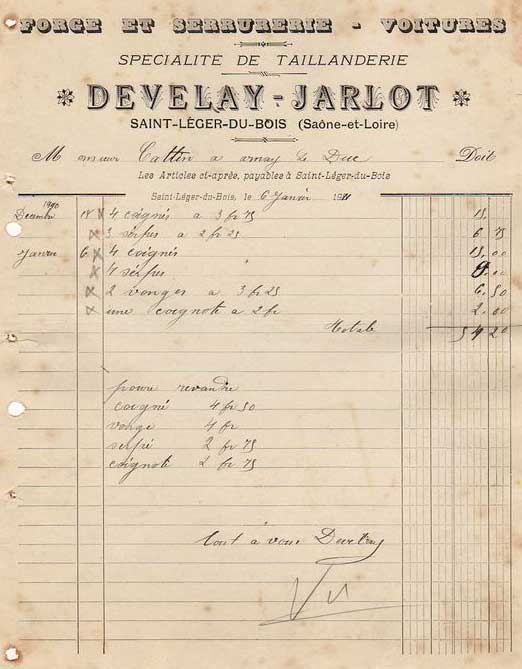 FORGE ET SERRURERIE - VOITURES
SPÉCIALITÉ DE TAILLANDERIE
DEVELAY-JARLOT
SAINT-LÉGER-DU-BOIS (Saône-et-Loire)
Monsieur Cattin a arnay le Duc Doit
Les Articles ci-après, payables à Saint-Léger-du-Bois
Saint-Léger-du-Bois, le 6 Janvier 1911
1910
Decembre 18 x 4 coignés a 3 fr 75 15,
x 3 serpes a 2 fr 25 6 75
Janvier 6 x 4 coignés 15,00
x 4 serpes 9.00
x 2 vonges a 3 fr 25 6.50
x une coignote a 2 fr 2.00
Totale 54 20
poure revandre
coigné 4 fr 50
vonge 4 fr
serpe 2 fr 75
coignote 2 fr 75
tout a vous Develay
Vu